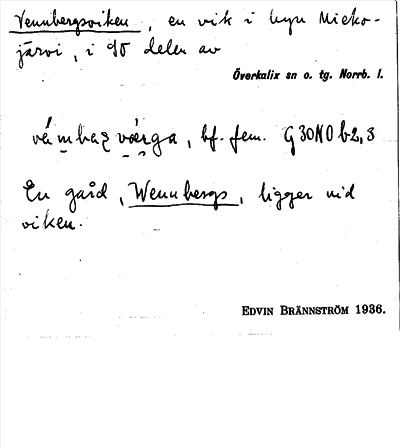 Vennbergsviken, en vik i byn Miekojärvi, i SO delen av
Överkalix sn o. tg. Norrb. l.
bf. fem. G30NO b2,3
En gård, Wennbergs, ligger vid
viken.
EDVIN BRÄNNSTRÖM 1936.